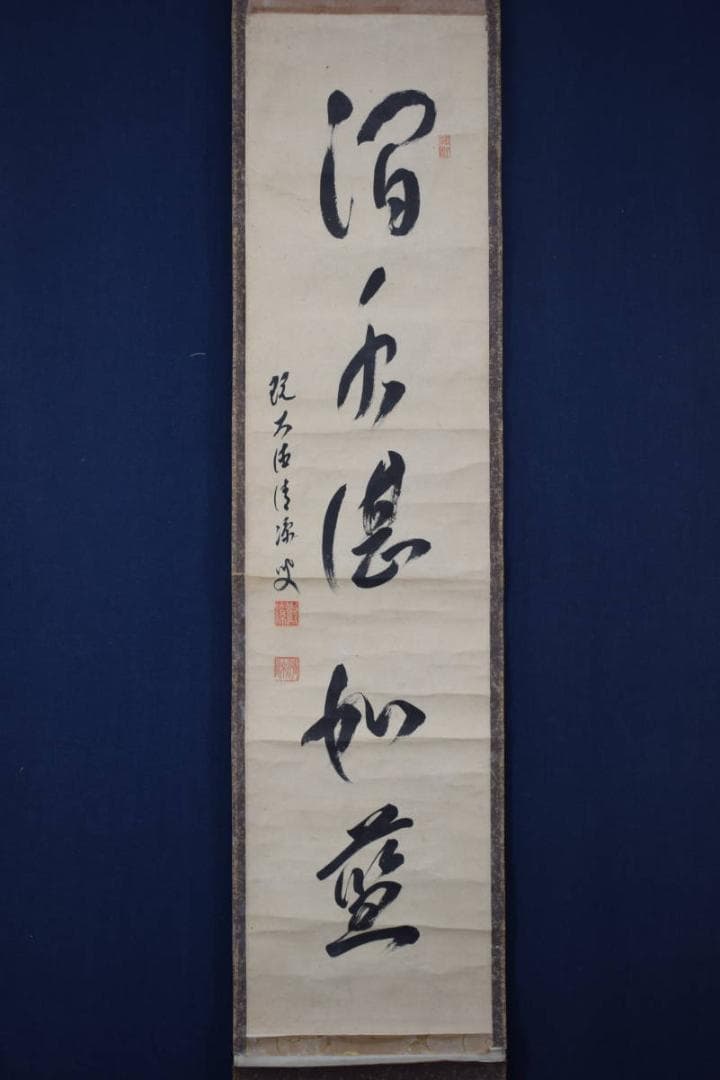 澗水湛如藍
現大徳清叟